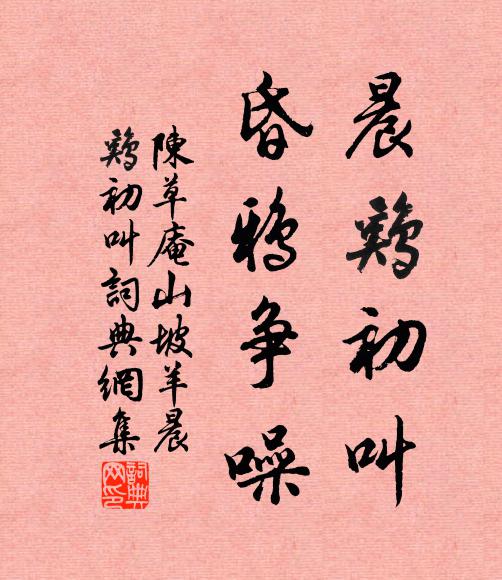 晨鷄初叫
昏鴉争噪
陳草庵山坡羊晨
鷄初叫詞典網集
詞典
网印